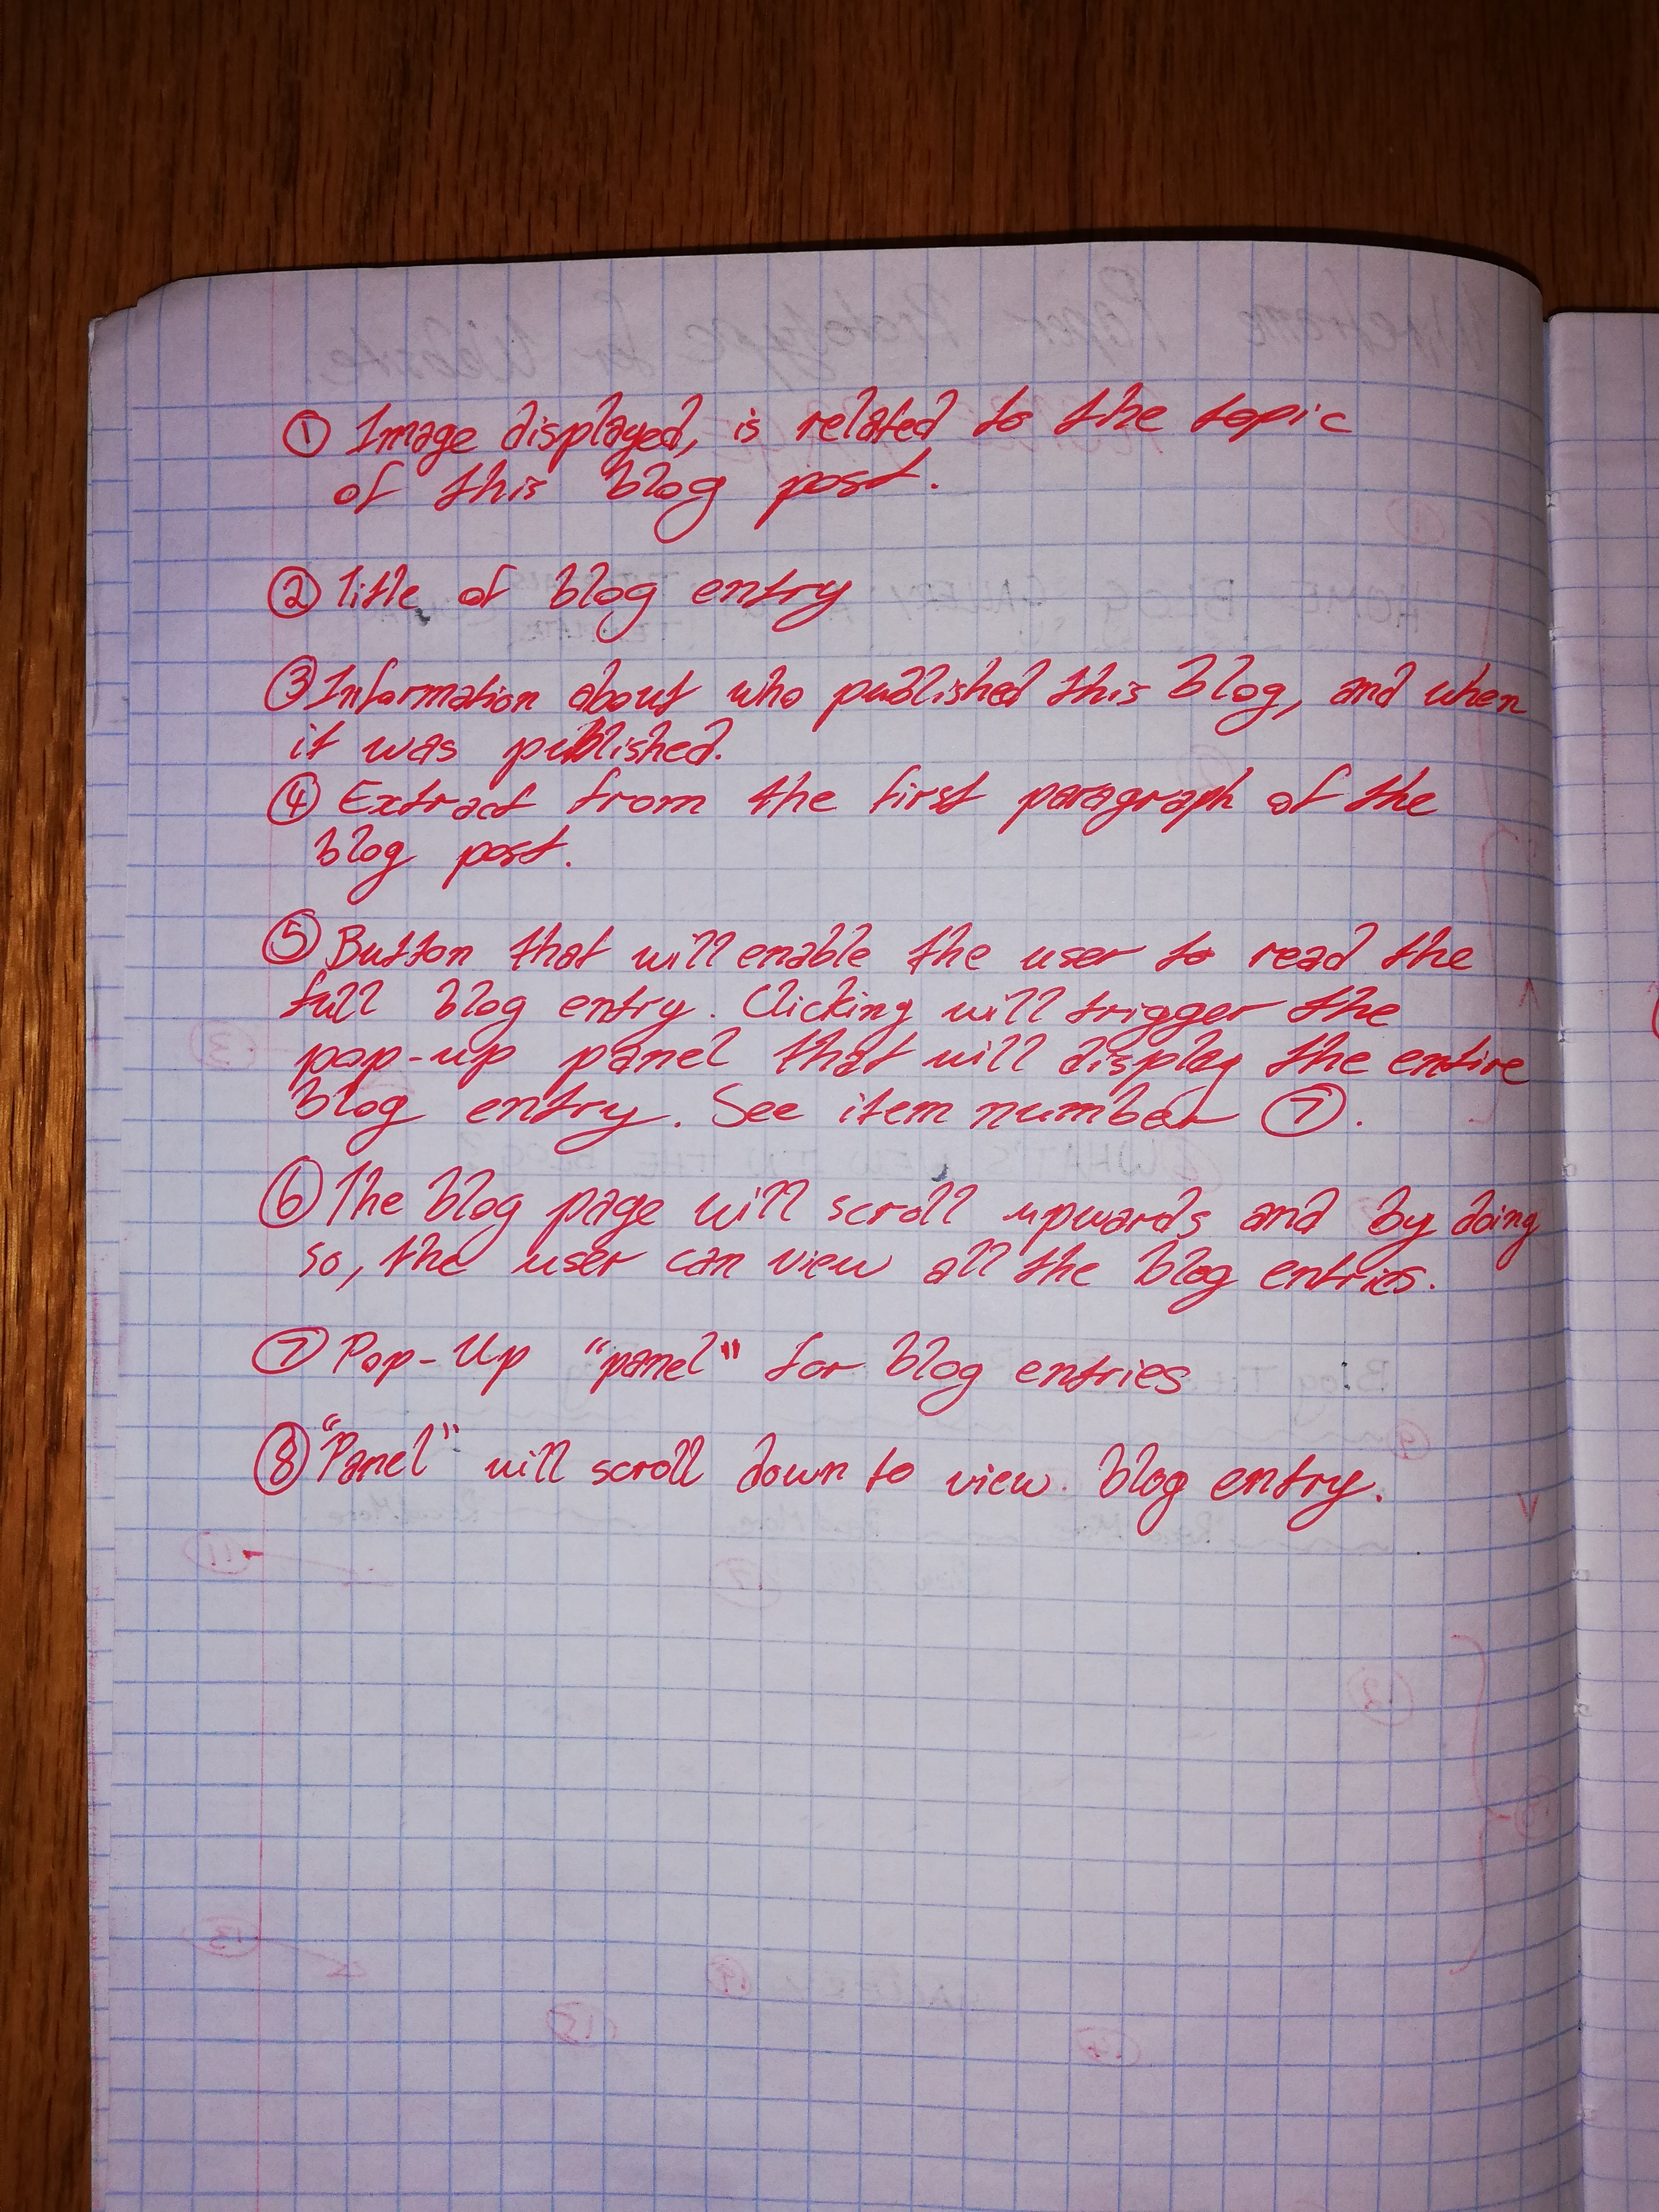 ① Image displayed, is related to the topic
of this blog post.
② Title of blog entry
③ Information about who published this blog, and when
it was published.
④ Extract from the first paragraph of the
blog post.
⑤ Button that will enable the user to read the
full blog entry. Clicking will trigger the
pop-up panel that will display the entire
blog entry. See item number ⑦.
⑥ The blog page will scroll upwards and by doing
so, the user can view all the blog entries.
⑦ Pop-Up "panel" for blog entries
⑧ "Panel" will scroll down to view blog entry.